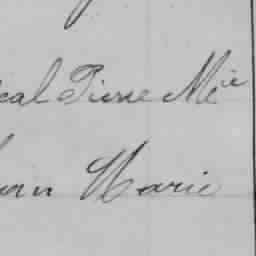 eal Pierre Mie
Marie